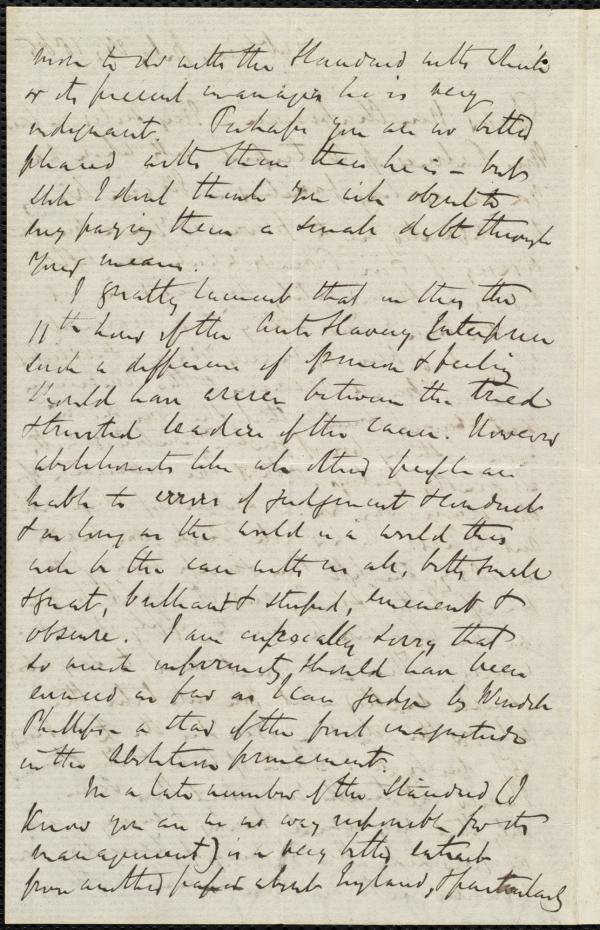 more to do with the Standard with which
or its present managers he is very
indignant. Perhaps you are no better
pleased with them than he is - but
still I dont think you will object to
my paying them a small debt through
your means.
I greatly lament that in this the
11th hour of the Anti Slavery Enterprise
such a difference of opinion & feeling
should have arisen between the tried
& trusted leaders of the cause. However
abolitionists like all other people are
liable to errors of judgement & conduct
& as long as the world is a world this
will be the case with us all, both small
& great, brilliant & stupid, eminent &
obscure. I am especially sorry that
so much infirmity should have been
evinced as far as I can judge by Wendell
Phillips - a star of the first magnitude
in the Abolition firmament.
In a late number of the Standard (I
know you are in no way responsible for its
management) is a very bitter extract
from another paper about England, & particularly